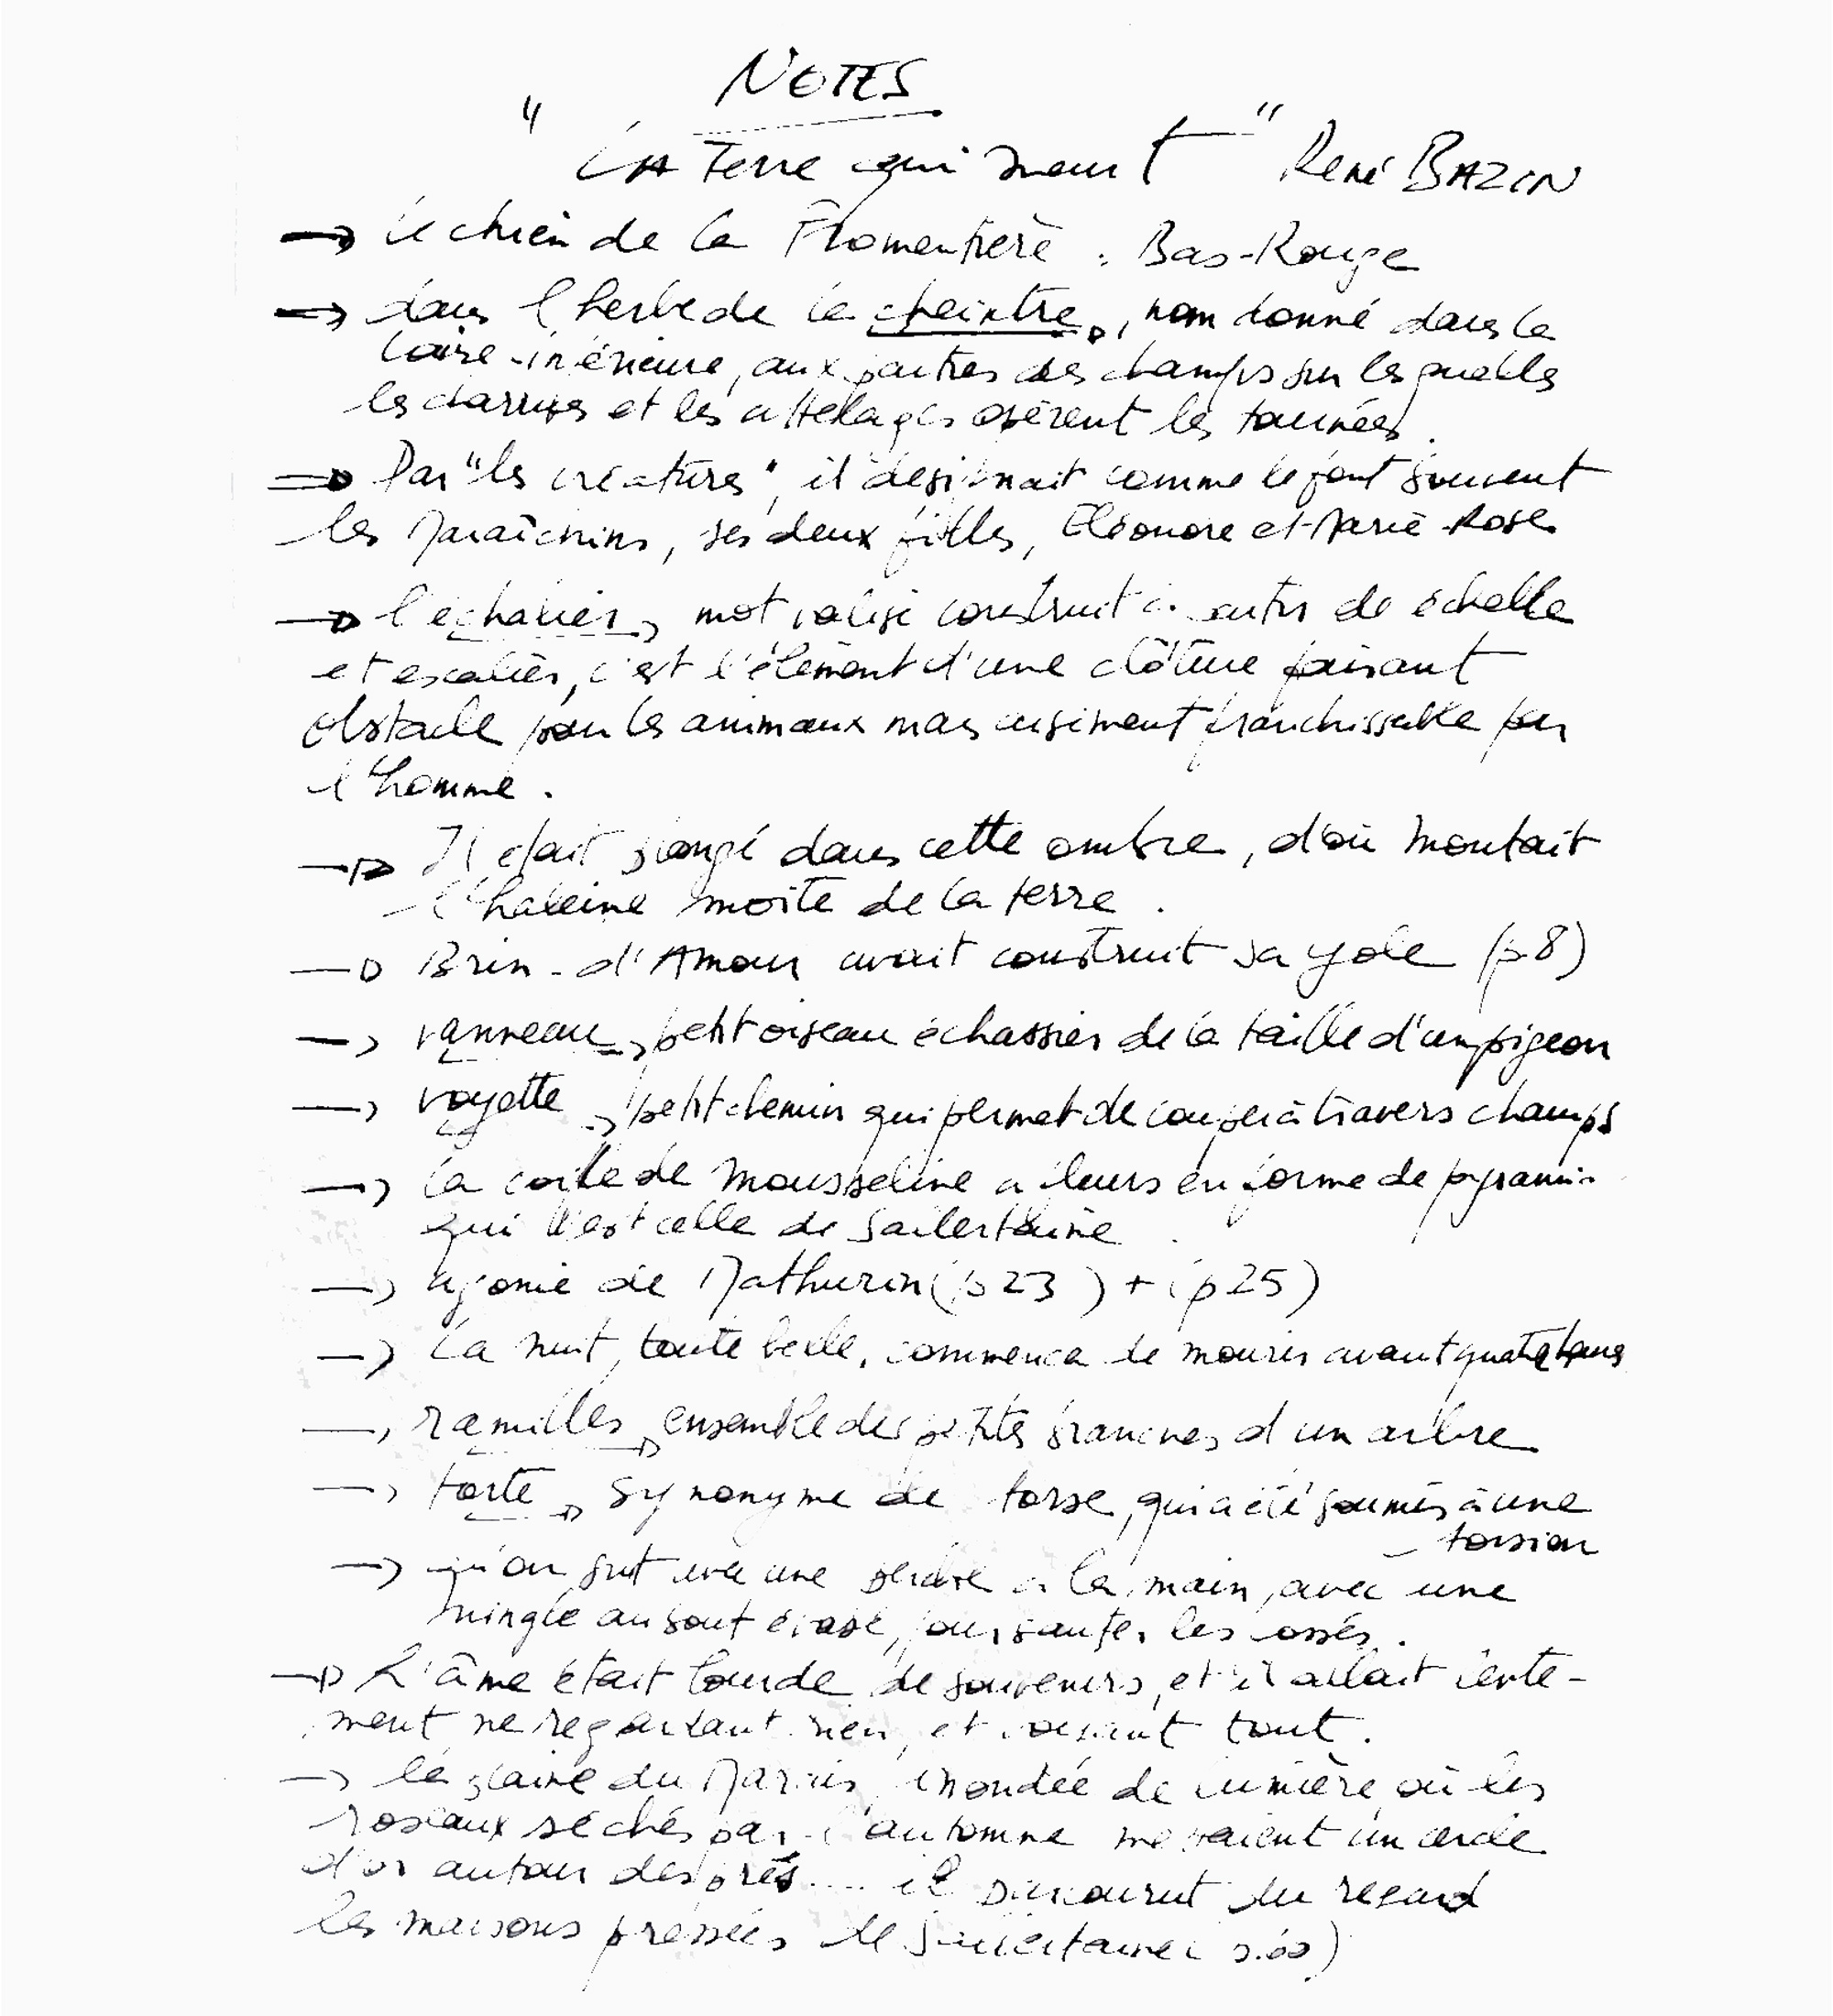 NOTES
"LA Terre qui meurt" René BAZIN
→ le chien de la Fromentière : Bas-Rouge
→ dans l'herbe de la cheintre →, nom donné dans la
Loire-inférieure, aux parties des champs sur lesquelles
les charrues et les attelages opèrent les tournées.
→ Par "les créatures", il désignait comme le font souvent
les Maraîchins, ses deux filles, Eléonore et Marie-Rose
→ l'échalier → mot valise construit à partir de échelle
et escalier, c'est l'élément d'une clôture faisant
obstacle pour les animaux mais aisément franchissable par
l'homme.
→ Il était plongé dans cette ombre, d'où montait
l'haleine moite de la terre.
→ Brin-d'Amour avait construit sa yole (p8)
→ vanneau → petit oiseau échassier de la taille d'un pigeon
→ voyette → petit chemin qui permet de couper à travers champs
→ la coiffe de mousseline à fleurs en forme de pyrami-
qui est celle de Sallertaine.
→ agonie de Mathurin (p23) + (p25)
→ La nuit, toute belle, commença de mourir avant quatre heures
→ ramilles → ensemble des petites branches d'un arbre
→ torte → synonyme de torse, qui a été soumis à une
torsion
→ qu'on suit avec une perche à la main, avec une
ningle au bout évasé, pour sauter les fossés.
→ L'âme était lourde de souvenirs, et il allait lente-
ment ne regardant rien, et voyant tout.
→ la plaine du Marais, inondée de lumière, où les
roseaux séchés par l'automne mettaient un cercle
d'or autour des prés.... il parcourut du regard
les maisons pressées de Sallertaine